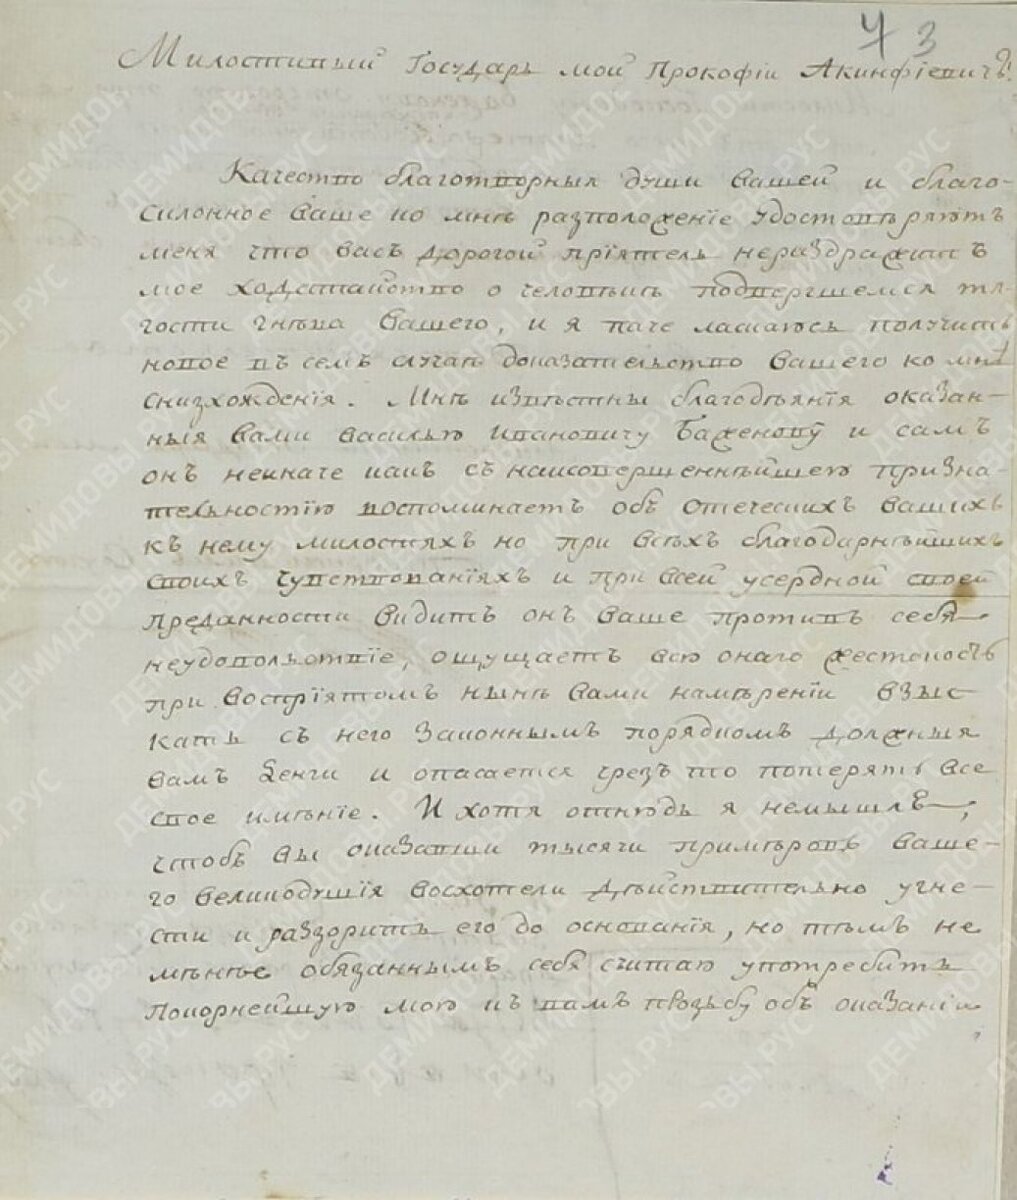 43
Милостивый Государь мой Прокофiи Акинфiевичъ!
Качество благотворныя души вашей и благо-
Силонное Ваше ко мнѣ разположенiе удостовѣряютъ
меня что васъ дорогой прiятель нераздражитъ
мое ходатайство о человѣкѣ подвергшемся тя-
гости гнѣва вашего, и я паче ласкаюсь получить
новое въ семъ случаѣ доказательство Вашего ко мнѣ
снизхожденiя. Мнѣ извѣстны благодѣянiя оказан-
ныя Вами Василью Ивановичу Баженову и самъ
онъ неиначе какъ съ наисовершеннѣйшею призна-
тельностiю воспоминаетъ объ отеческихъ вашихъ
къ нему милостяхъ но при всѣхъ благодарнѣйшихъ
своихъ чувствованiяхъ и при всей усердной своей
преданности видитъ онъ ваше противъ себя
неудовольствiе, ощущаетъ всю онаго жестокость
при воспрiятомъ нынѣ вами намѣренiи взыс-
кать съ него законнымъ порядкомъ должныя
вамъ деньги и опасается чрезъ то потерять все
свое имѣнiе. И хотя отнюдь я немышлю,
чтобъ вы оказавши тысячи примѣровъ ваше-
го великодушiя восхотели дѣйствительно угне-
сти и раззорить его до основанiя, но тѣмъ не
менѣе обязаннымъ себя считаю употребить
покорнейшую мою къ вамъ прозьбу объ оказанiи